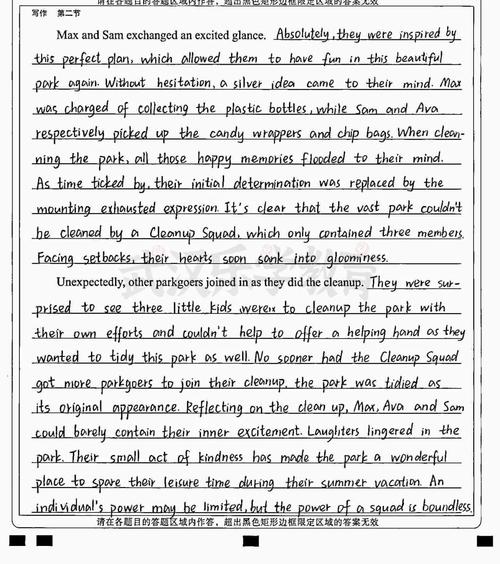 请在各题目的答题区域内作答，超出黑色矩形边框限定区域的答案无效
写作 第二节
Max and Sam exchanged an excited glance. Absolutely, they were inspired by
this perfect plan, which allowed them to have fun in this beautiful
park again. Without hesitation, a silver idea came to their mind. Max
was charged of collecting the plastic bottles, while Sam and Ava
respectively picked up the candy wrappers and chip bags. When clean-
ning the park, all those happy memories flooded to their mind.
As time ticked by, their initial determination was replaced by the
mounting exhausted expression. It's clear that the vast park couldn't
be cleaned by a Cleanup Squad, which only contained three members.
Facing setbacks, their hearts soon sank into gloominess.
武汉乐学教育
Unexpectedly, other parkgoers joined in as they did the cleanup. They were sur-
prised to see three little kids were to cleanup the park with
their own efforts and couldn't help to offer a helping hand as they
wanted to tidy this park as well. No sooner had the Cleanup Squad
got more parkgoers to join their cleanup, the park was tidied as
its original appearance. Reflecting on the clean up, Max, Ava and Sam
could barely contain their inner excitement. Laughters lingered in the
park. Their small act of kindness has made the park a wonderful
place to spare their leisure time during their summer vacation. An
individual's power may be limited, but the power of a squad is boundless.
请在各题目的答题区域内作答，超出黑色矩形边框限定区域的答案无效